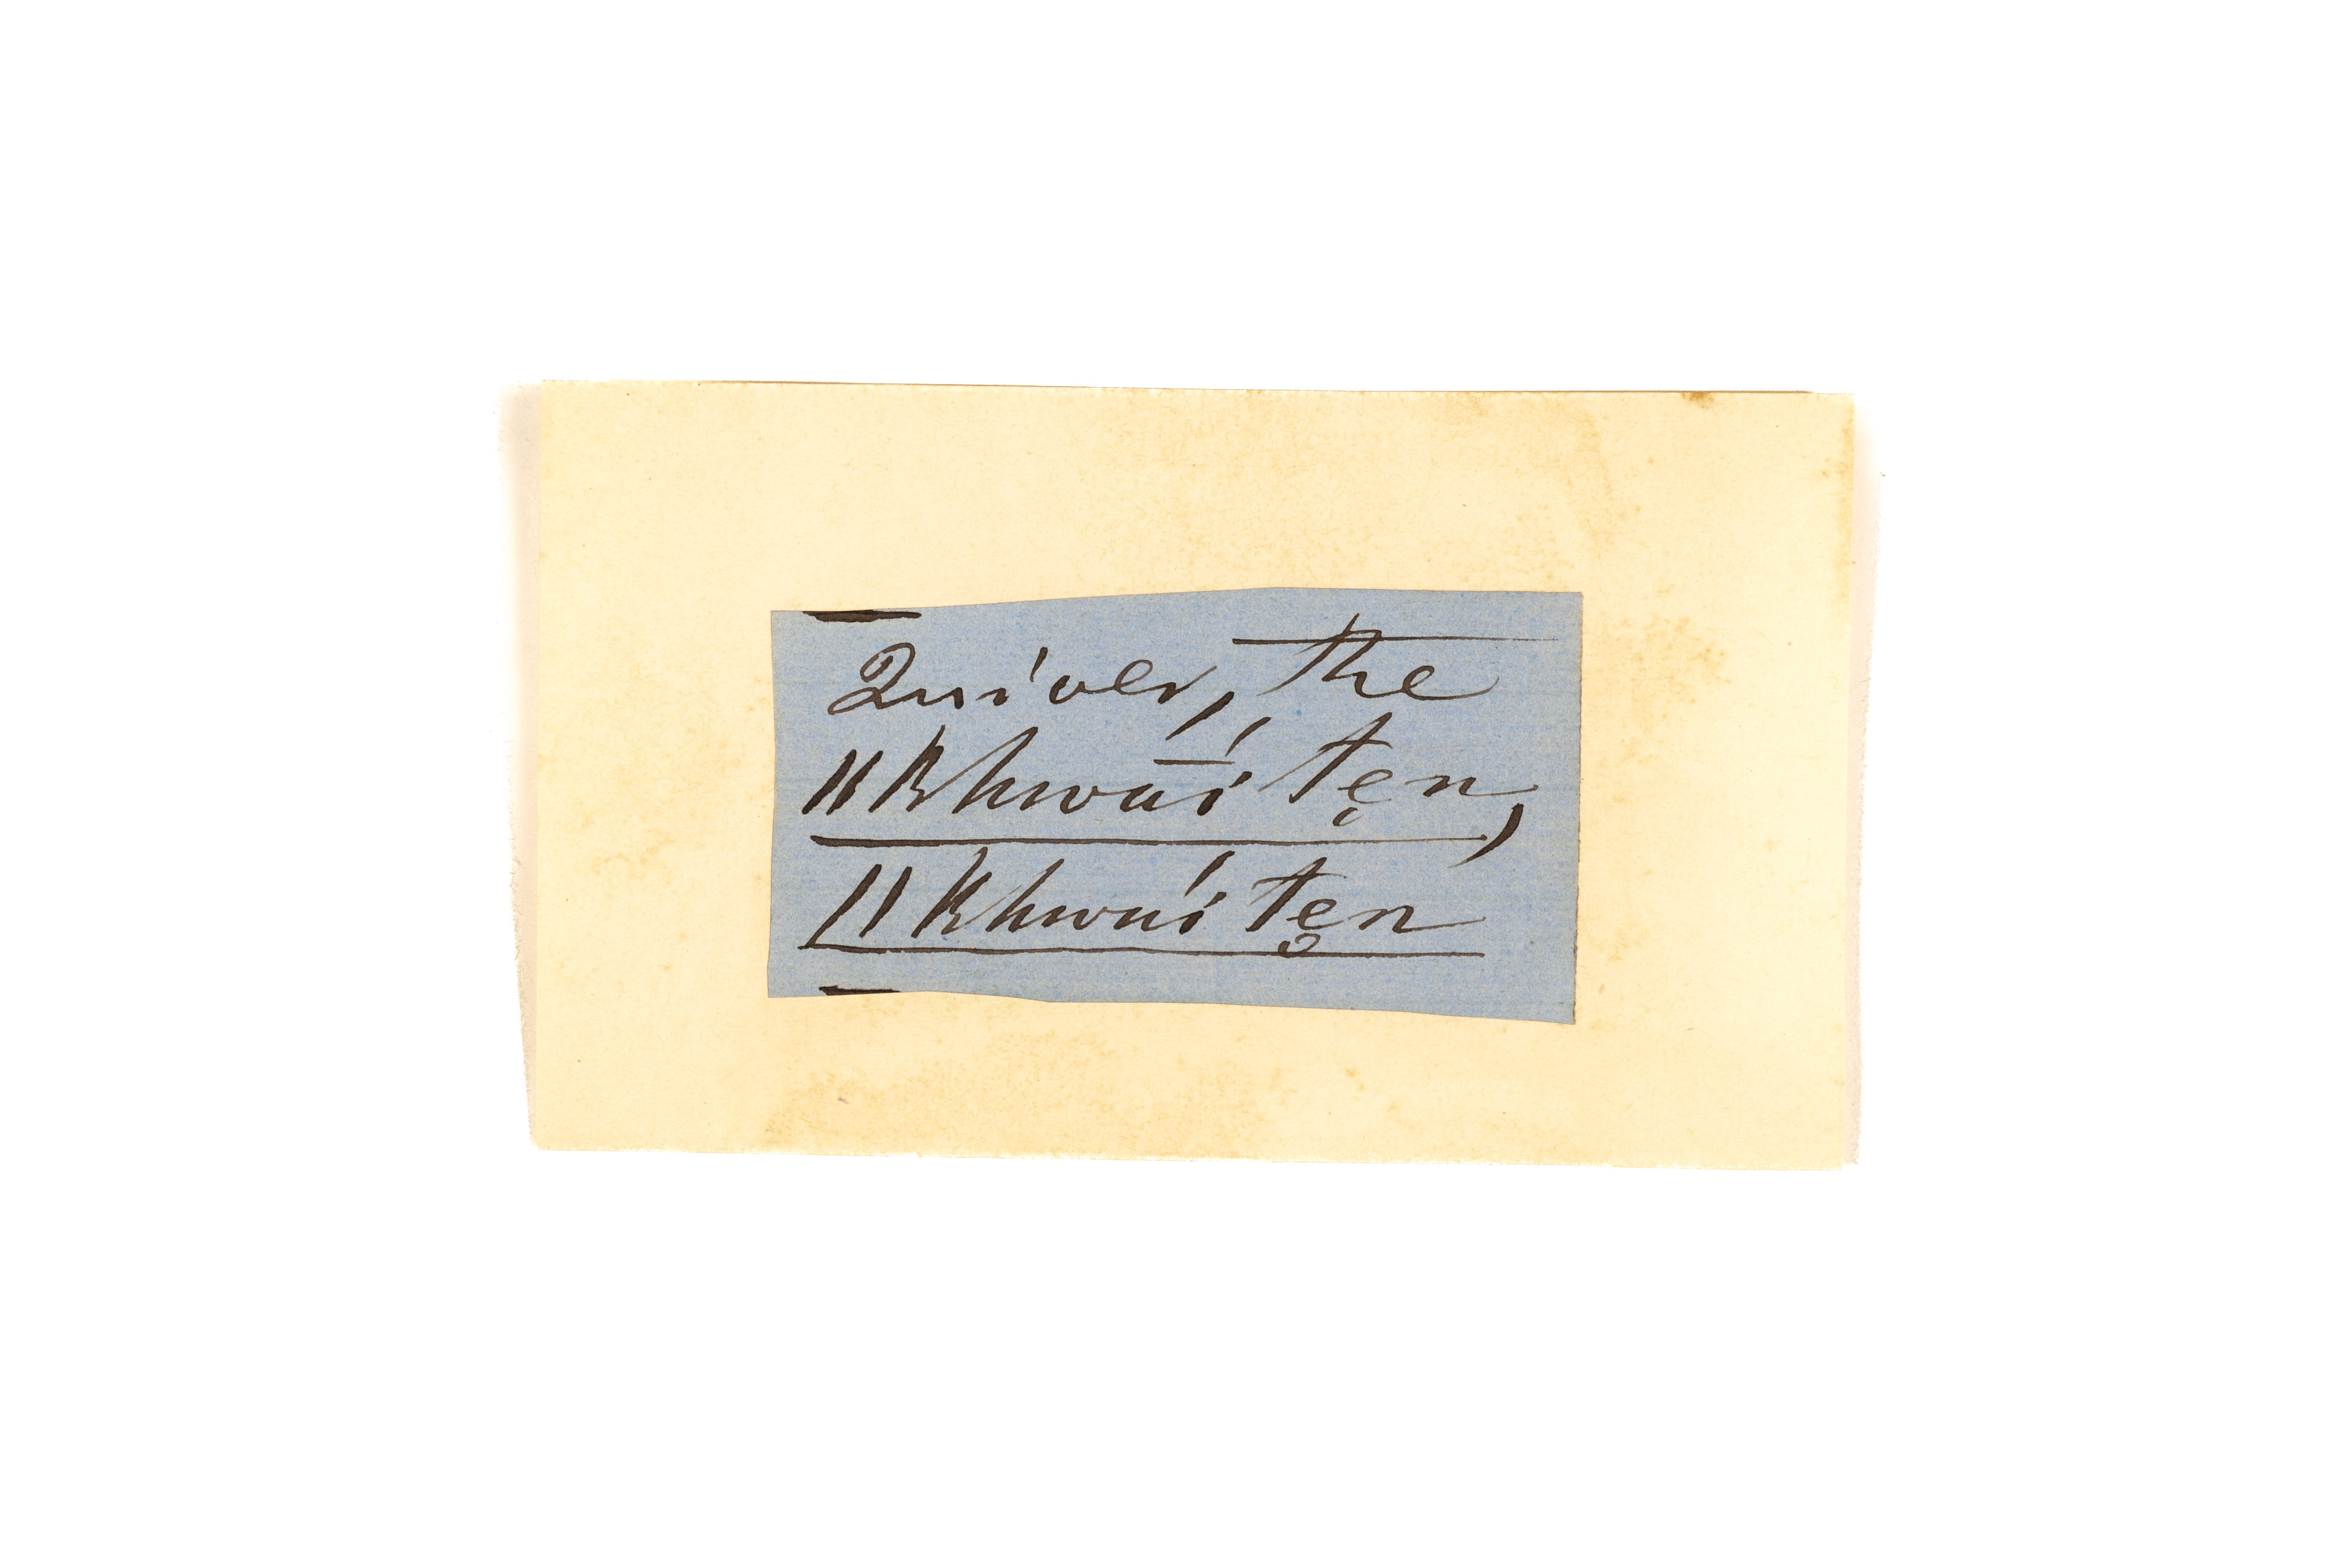 Quiver, the
ǁKhwāí tẹn,
ǁKhwaí tẹn